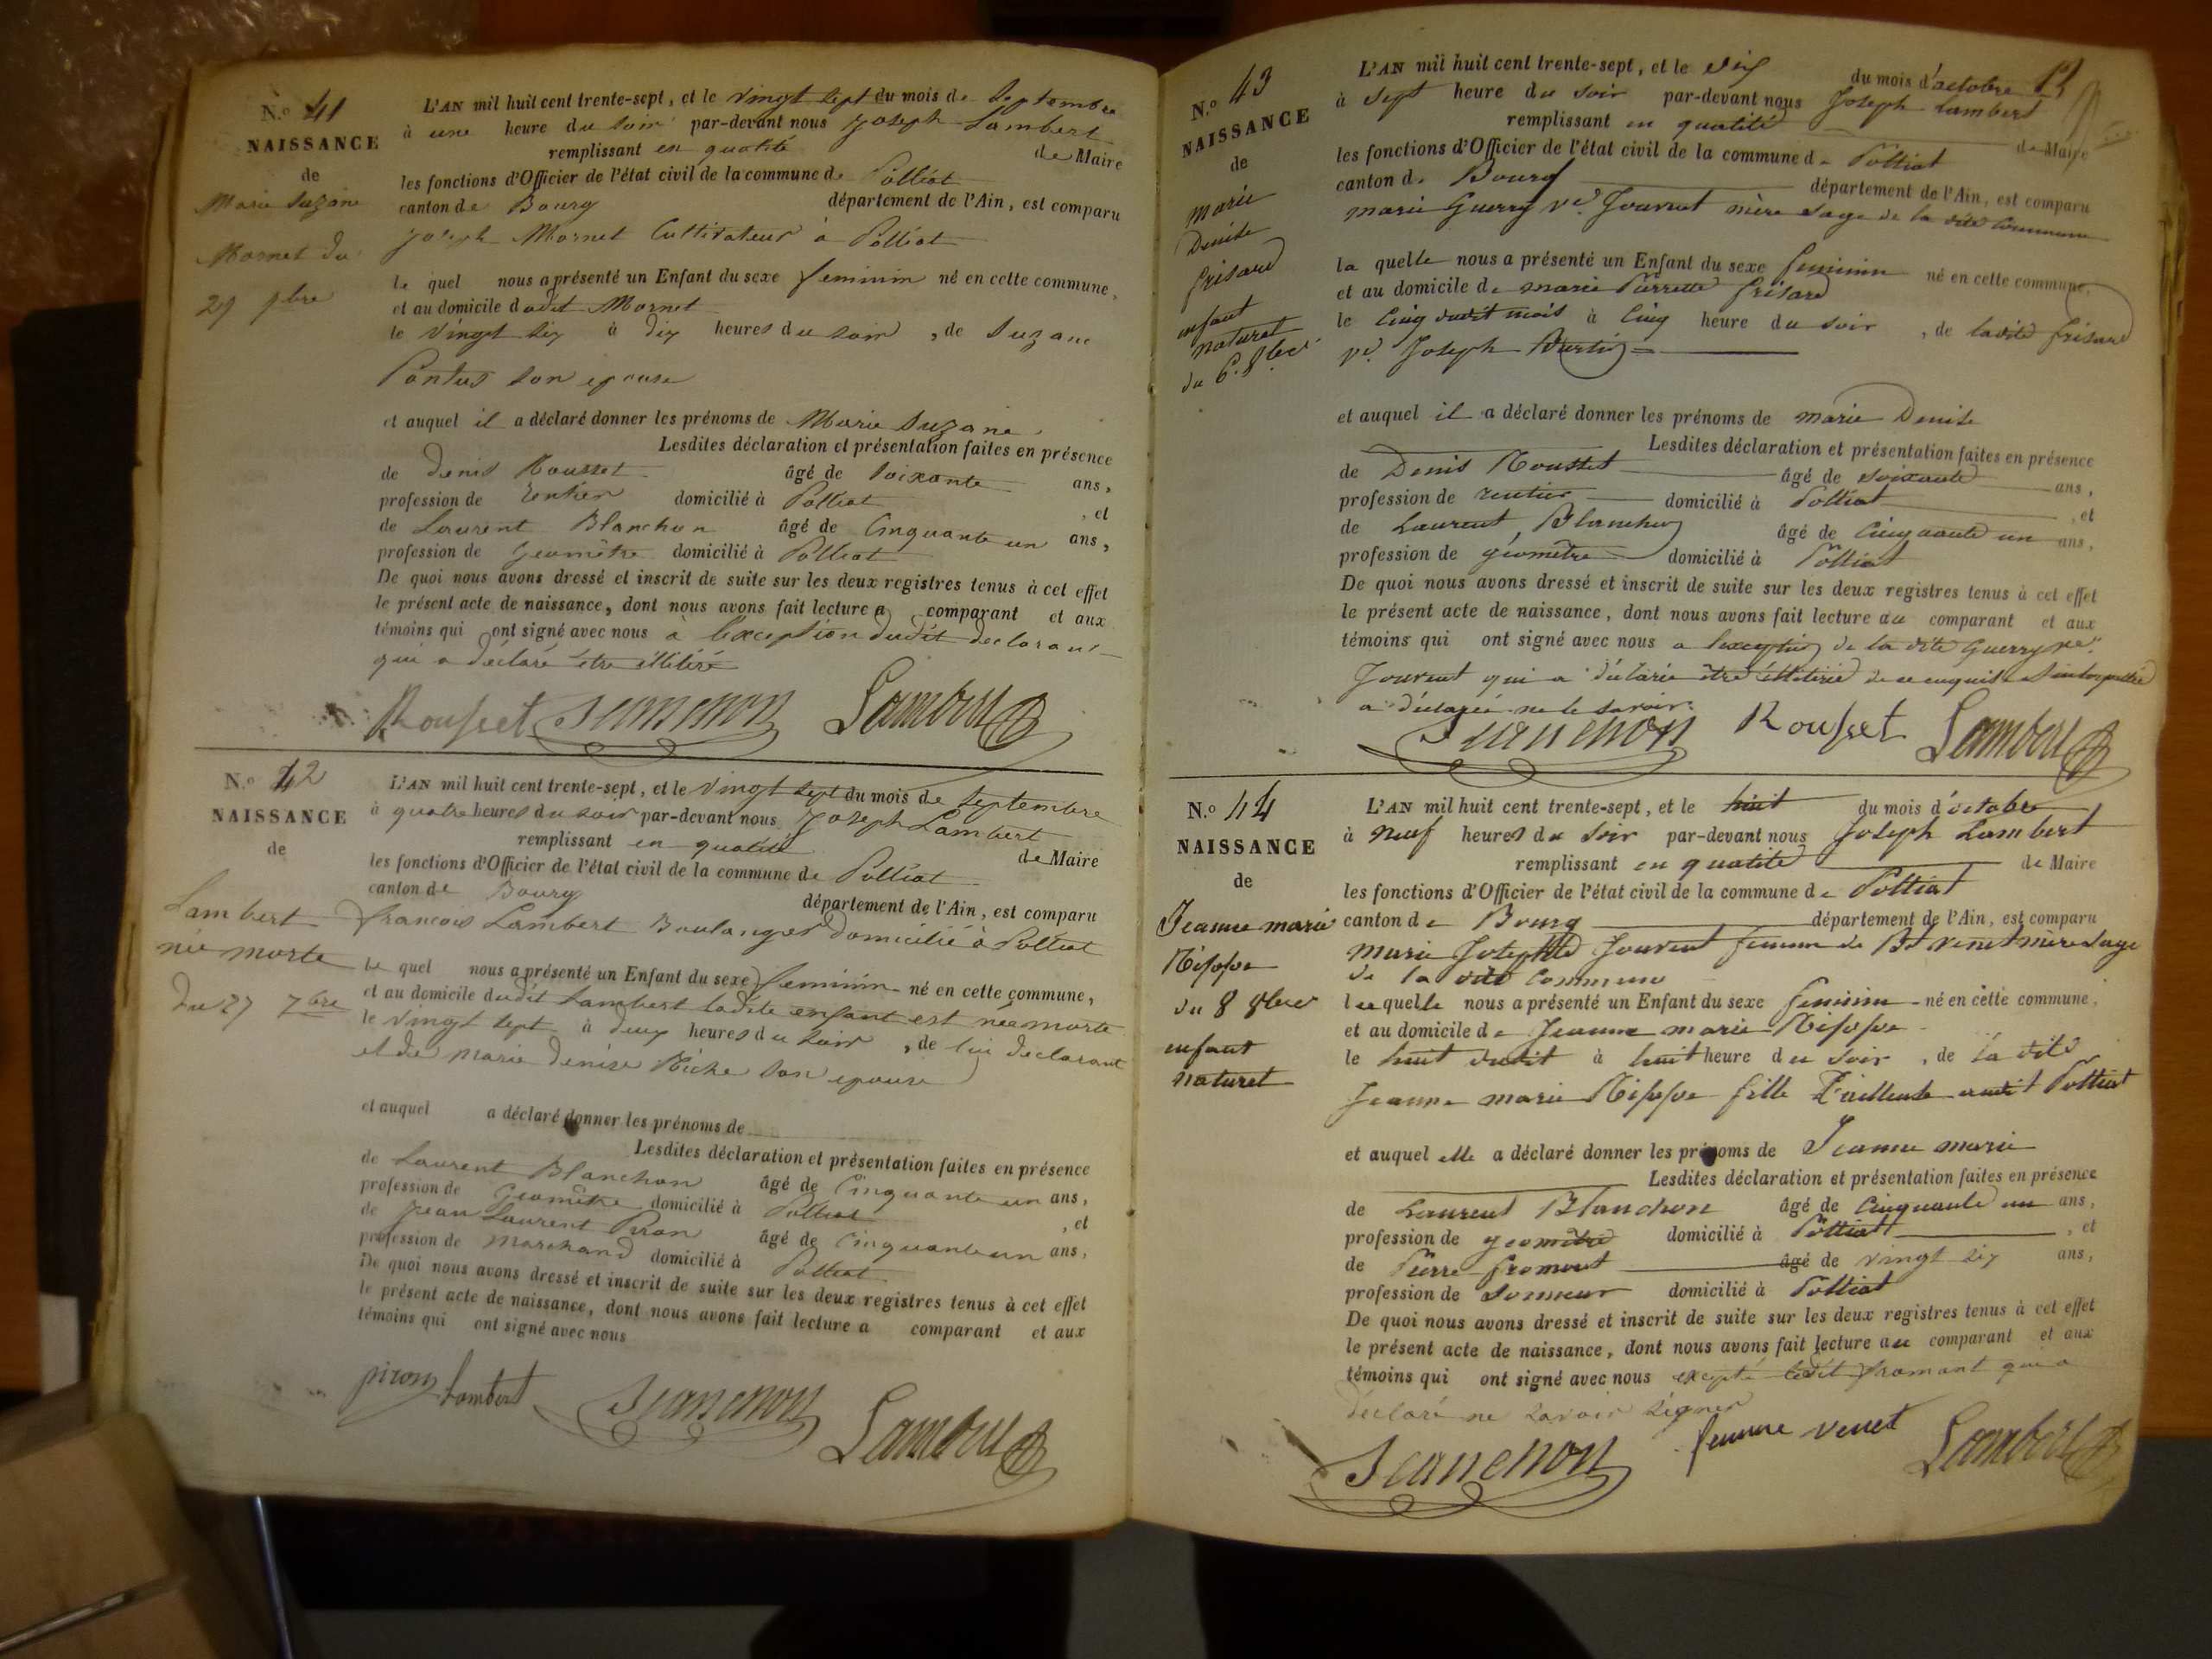 N.o 41
NAISSANCE
de
Marie Suzane
Mornet du
27 7bre
L'AN mil huit cent trente-sept, et le vingt sept du mois de Septembre
à une heure du soir par-devant nous Joseph Lambert
remplissant en qualité de Maire
les fonctions d'Officier de l'état civil de la commune de Polliat
canton de Bourg département de l'Ain, est comparu
Joseph Mornet Cultivateur à Polliat
le quel nous a présenté un Enfant du sexe feminin né en cette commune,
et au domicile dudit Mornet
le vingt six à dix heures du soir, de Suzane
son epouse
et auquel il a déclaré donner les prénoms de Marie Suzane
Lesdites déclaration et présentation faites en présence
de Denis Rousset âgé de Soixante ans,
profession de Rentier domicilié à Polliat, et
de Laurent Blanchon âgé de Cinquante un ans,
profession de Geomètre domicilié à Polliat
De quoi nous avons dressé et inscrit de suite sur les deux registres tenus à cet effet
le présent acte de naissance, dont nous avons fait lecture a comparant et aux
témoins qui ont signé avec nous à l'exception dudit declarant
qui a déclaré être illitéré
Rousset Blanchon Lambert
N.o 42
NAISSANCE
de
Lambert
née morte
du 27 7bre
L'AN mil huit cent trente-sept, et le vingt sept du mois de Septembre
à quatre heures du soir par-devant nous Joseph Lambert
remplissant en qualité de Maire
les fonctions d'Officier de l'état civil de la commune de Polliat
canton de Bourg département de l'Ain, est comparu
francois Lambert Boulanger domicilié à Polliat
le quel nous a présenté un Enfant du sexe feminin né en cette commune,
et au domicile dudit Lambert ladite enfant est née morte
le vingt sept à deux heures du soir, de lui declarant
et de marie denise son epouse
et auquel a déclaré donner les prénoms de
Lesdites déclaration et présentation faites en présence
de Laurent Blanchon âgé de Cinquante un ans,
profession de Geomètre domicilié à Polliat, et
de Jean Laurent Piron âgé de Cinquante un ans,
profession de Marchand domicilié à Polliat
De quoi nous avons dressé et inscrit de suite sur les deux registres tenus à cet effet
le présent acte de naissance, dont nous avons fait lecture a comparant et aux
témoins qui ont signé avec nous
piron Lambert Blanchon Lambert
N.o 43
NAISSANCE
de
marie
Denise
frisard
enfant
naturel
du 6 8bre
L'AN mil huit cent trente-sept, et le six du mois d'octobre
à sept heure du soir par-devant nous Joseph Lambert
remplissant en qualité de Maire
les fonctions d'Officier de l'état civil de la commune de Polliat
canton de Bourg département de l'Ain, est comparu
marie Guerry ve. Jouvent mère sage de la dite commune
la quelle nous a présenté un Enfant du sexe feminin né en cette commune,
et au domicile de marie Pierrette frisard
le cinq dudit mois à cinq heure du soir, de ladite frisard
ve. Joseph
et auquel il a déclaré donner les prénoms de marie Denise
Lesdites déclaration et présentation faites en présence
de Denis Rousset âgé de soixante ans,
profession de rentier domicilié à Polliat, et
de Laurent Blanchon âgé de cinquante un ans,
profession de géomètre domicilié à Polliat
De quoi nous avons dressé et inscrit de suite sur les deux registres tenus à cet effet
le présent acte de naissance, dont nous avons fait lecture au comparant et aux
témoins qui ont signé avec nous a l'exception de la dite Guerry ve.
Jouvent qui a déclaré être illitérée de ce enquise
a déclarée ne le savoir.
Blanchon Rousset Lambert
N.o 44
NAISSANCE
de
Jeanne marie
du 8 8bre
enfant
naturel
L'AN mil huit cent trente-sept, et le huit du mois d'octobre
à neuf heures du soir par-devant nous Joseph Lambert
remplissant en qualité de Maire
les fonctions d'Officier de l'état civil de la commune de Polliat
canton de Bourg département de l'Ain, est comparu
marie Josephte Jouvent femme de Bt. venet mère sage
de la dite commune
laquelle nous a présenté un Enfant du sexe feminin né en cette commune,
et au domicile de Jeanne marie
le huit dudit à huit heure du soir, de la dite
Jeanne marie fille Tailleuse audit Polliat
et auquel elle a déclaré donner les prénoms de Jeanne marie
Lesdites déclaration et présentation faites en présence
de Laurent Blanchon âgé de cinquante un ans,
profession de géomètre domicilié à Polliat, et
de Pierre fromont âgé de vingt six ans,
profession de sonneur domicilié à Polliat
De quoi nous avons dressé et inscrit de suite sur les deux registres tenus à cet effet
le présent acte de naissance, dont nous avons fait lecture au comparant et aux
témoins qui ont signé avec nous excepté ledit fromant qui a
déclaré ne savoir signer
Blanchon femme venet Lambert